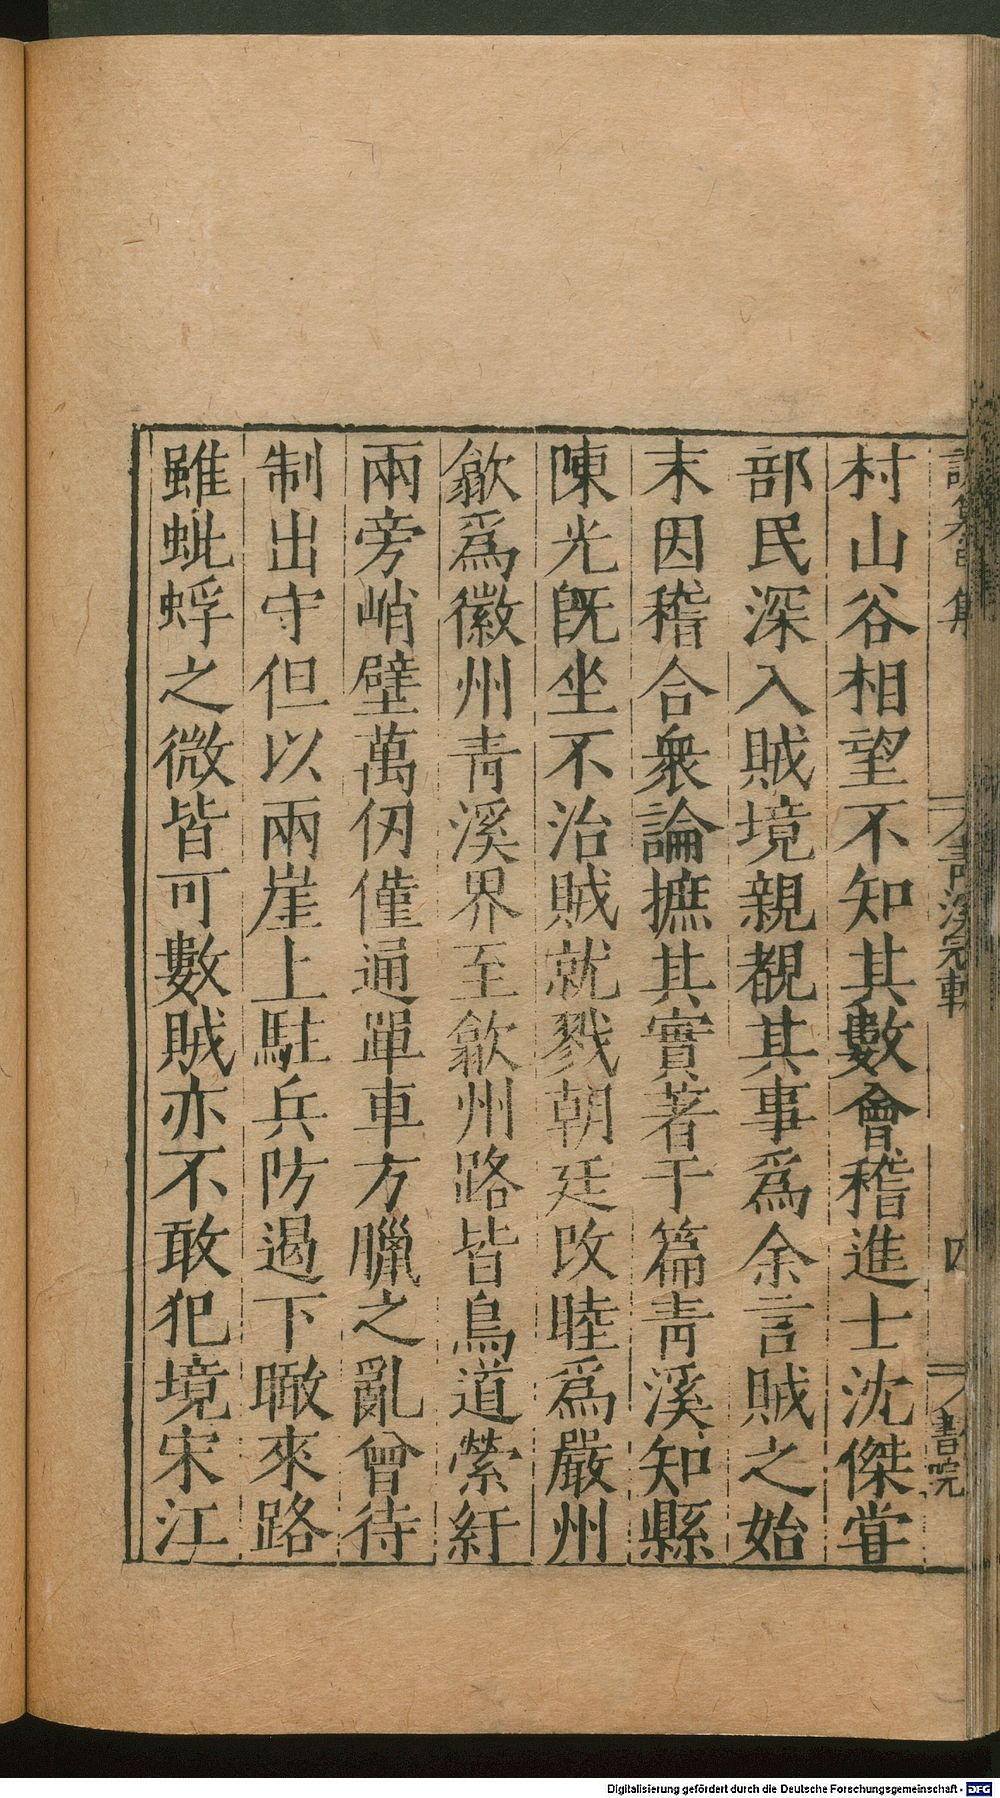 說纂集 青溪寇軌 四 書院
村山谷相望不知其數會稽進士沈傑甞
部民深入賊境親覩其事爲余言賊之始
末因稽合衆論摭其實著于篇青溪知縣
陳光旣坐不治賊就戮朝廷改睦爲嚴州
歙爲徽州青溪界至歙州路皆鳥道縈紆
兩旁峭壁萬仞僅通單車方臘之亂曾待
制出守但以兩崖上駐兵防遏下瞰來路
雖蚍蜉之微皆可數賊亦不敢犯境宋江
Digitalisierung gefördert durch die Deutsche Forschungsgemeinschaft - DFG